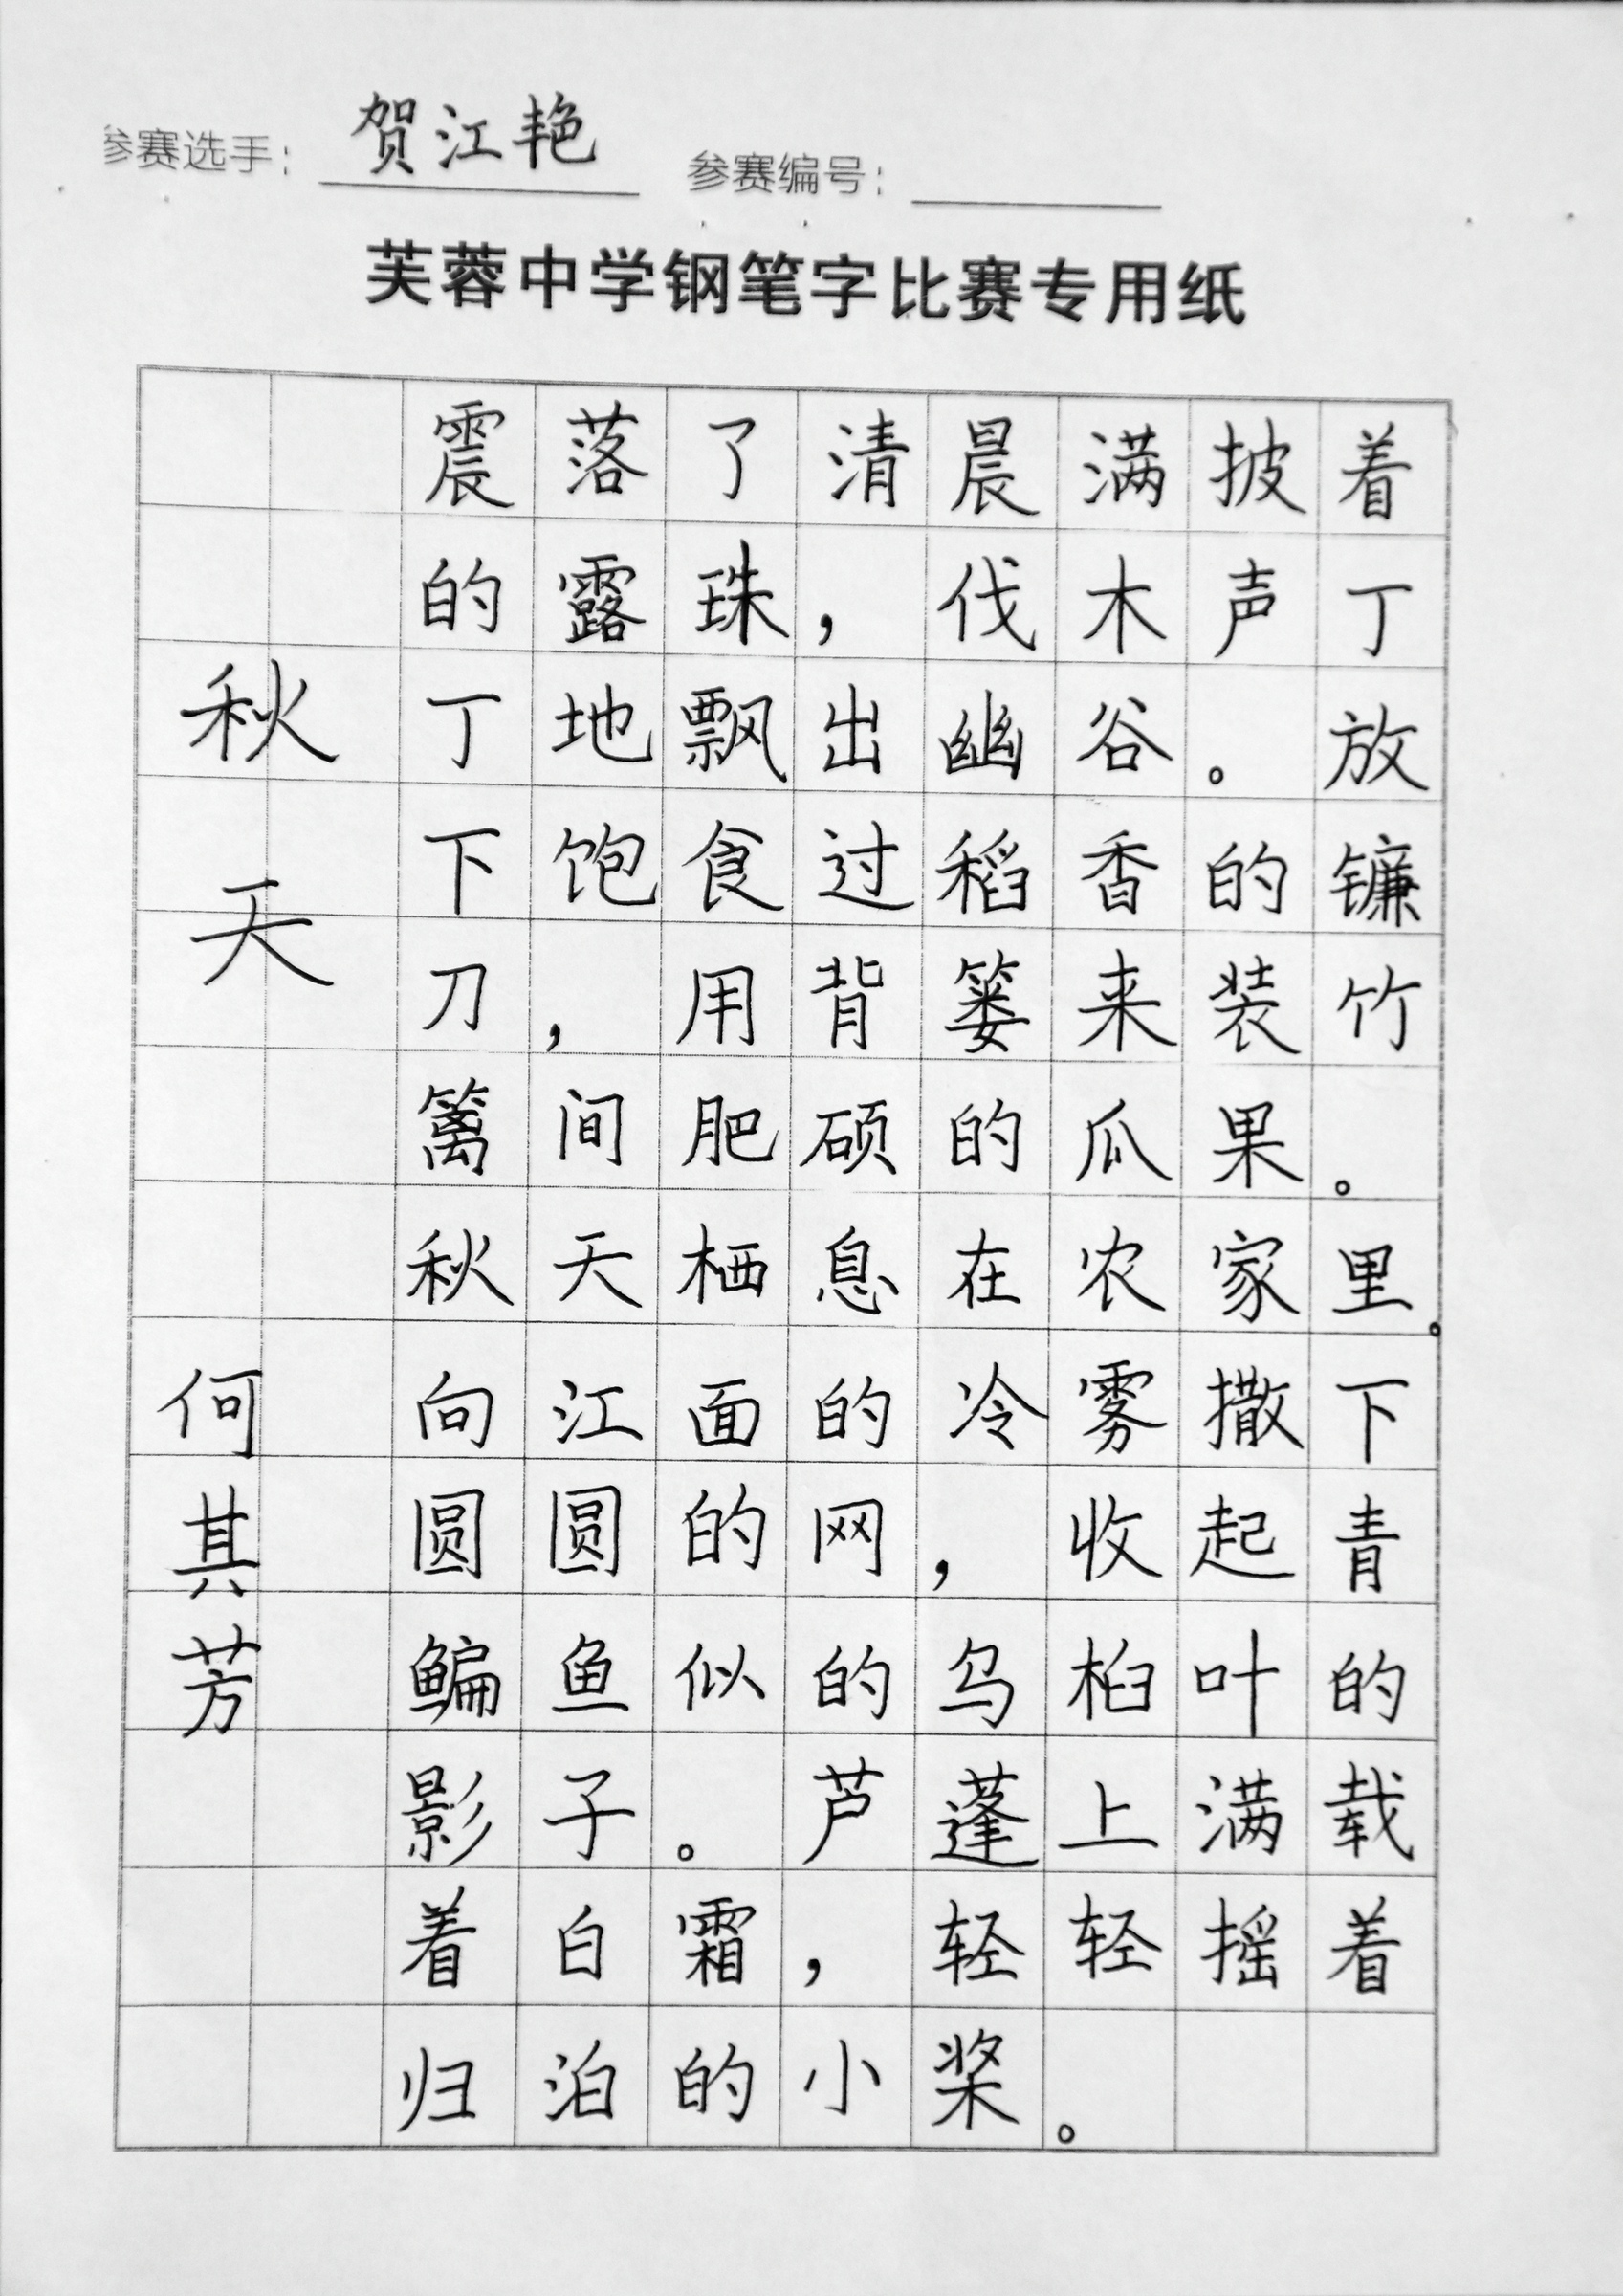 参赛选手： 贺江艳 参赛编号：
芙蓉中学钢笔字比赛专用纸
秋天
何其芳
震落了清晨满披着
的露珠，伐木声丁
丁地飘出幽谷。放
下饱食过稻香的镰
刀，用背篓来装竹
篱间肥硕的瓜果。
秋天栖息在农家里。
向江面的冷雾撒下
圆圆的网，收起青
鳊鱼似的乌桕叶的
影子。芦蓬上满载
着白霜，轻轻摇着
归泊的小桨。